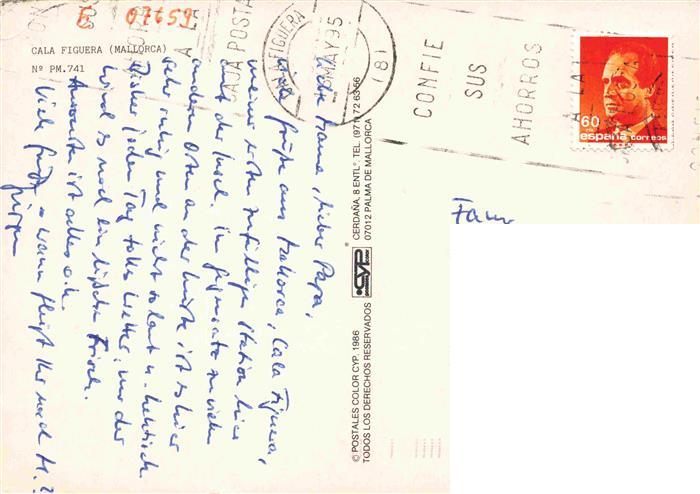 E 07659
CALA FIGUERA (MALLORCA)
Nº PM.741
CALA FIGUERA
MAY 95
(8)
CAJA POSTA
CONFIE
SUS
AHORROS
A LA
60
españa correos
Fam
Liebe Mama, lieber Papa,
viele Grüße aus Mallorca, Cala Figuera,
meiner ersten zufälligen Station hier
auf der Insel. Im Gegensatz zu vielen
anderen Orten an der Küste ist es hier
sehr ruhig und nicht so laut u. hektisch.
Bisher jeden Tag tolles Wetter, nur der
Wind ist noch ein bißchen frisch.
Ansonsten ist alles o.k.
Viele Grüße wann fliegt Ihr nach M.?
Jürgen
© POSTALES COLOR CYP, 1986
TODOS LOS DERECHOS RESERVADOS
CYP
CERDAÑA, 8 ENTLº. TEL. (971) 72 63 56
07012 PALMA DE MALLORCA